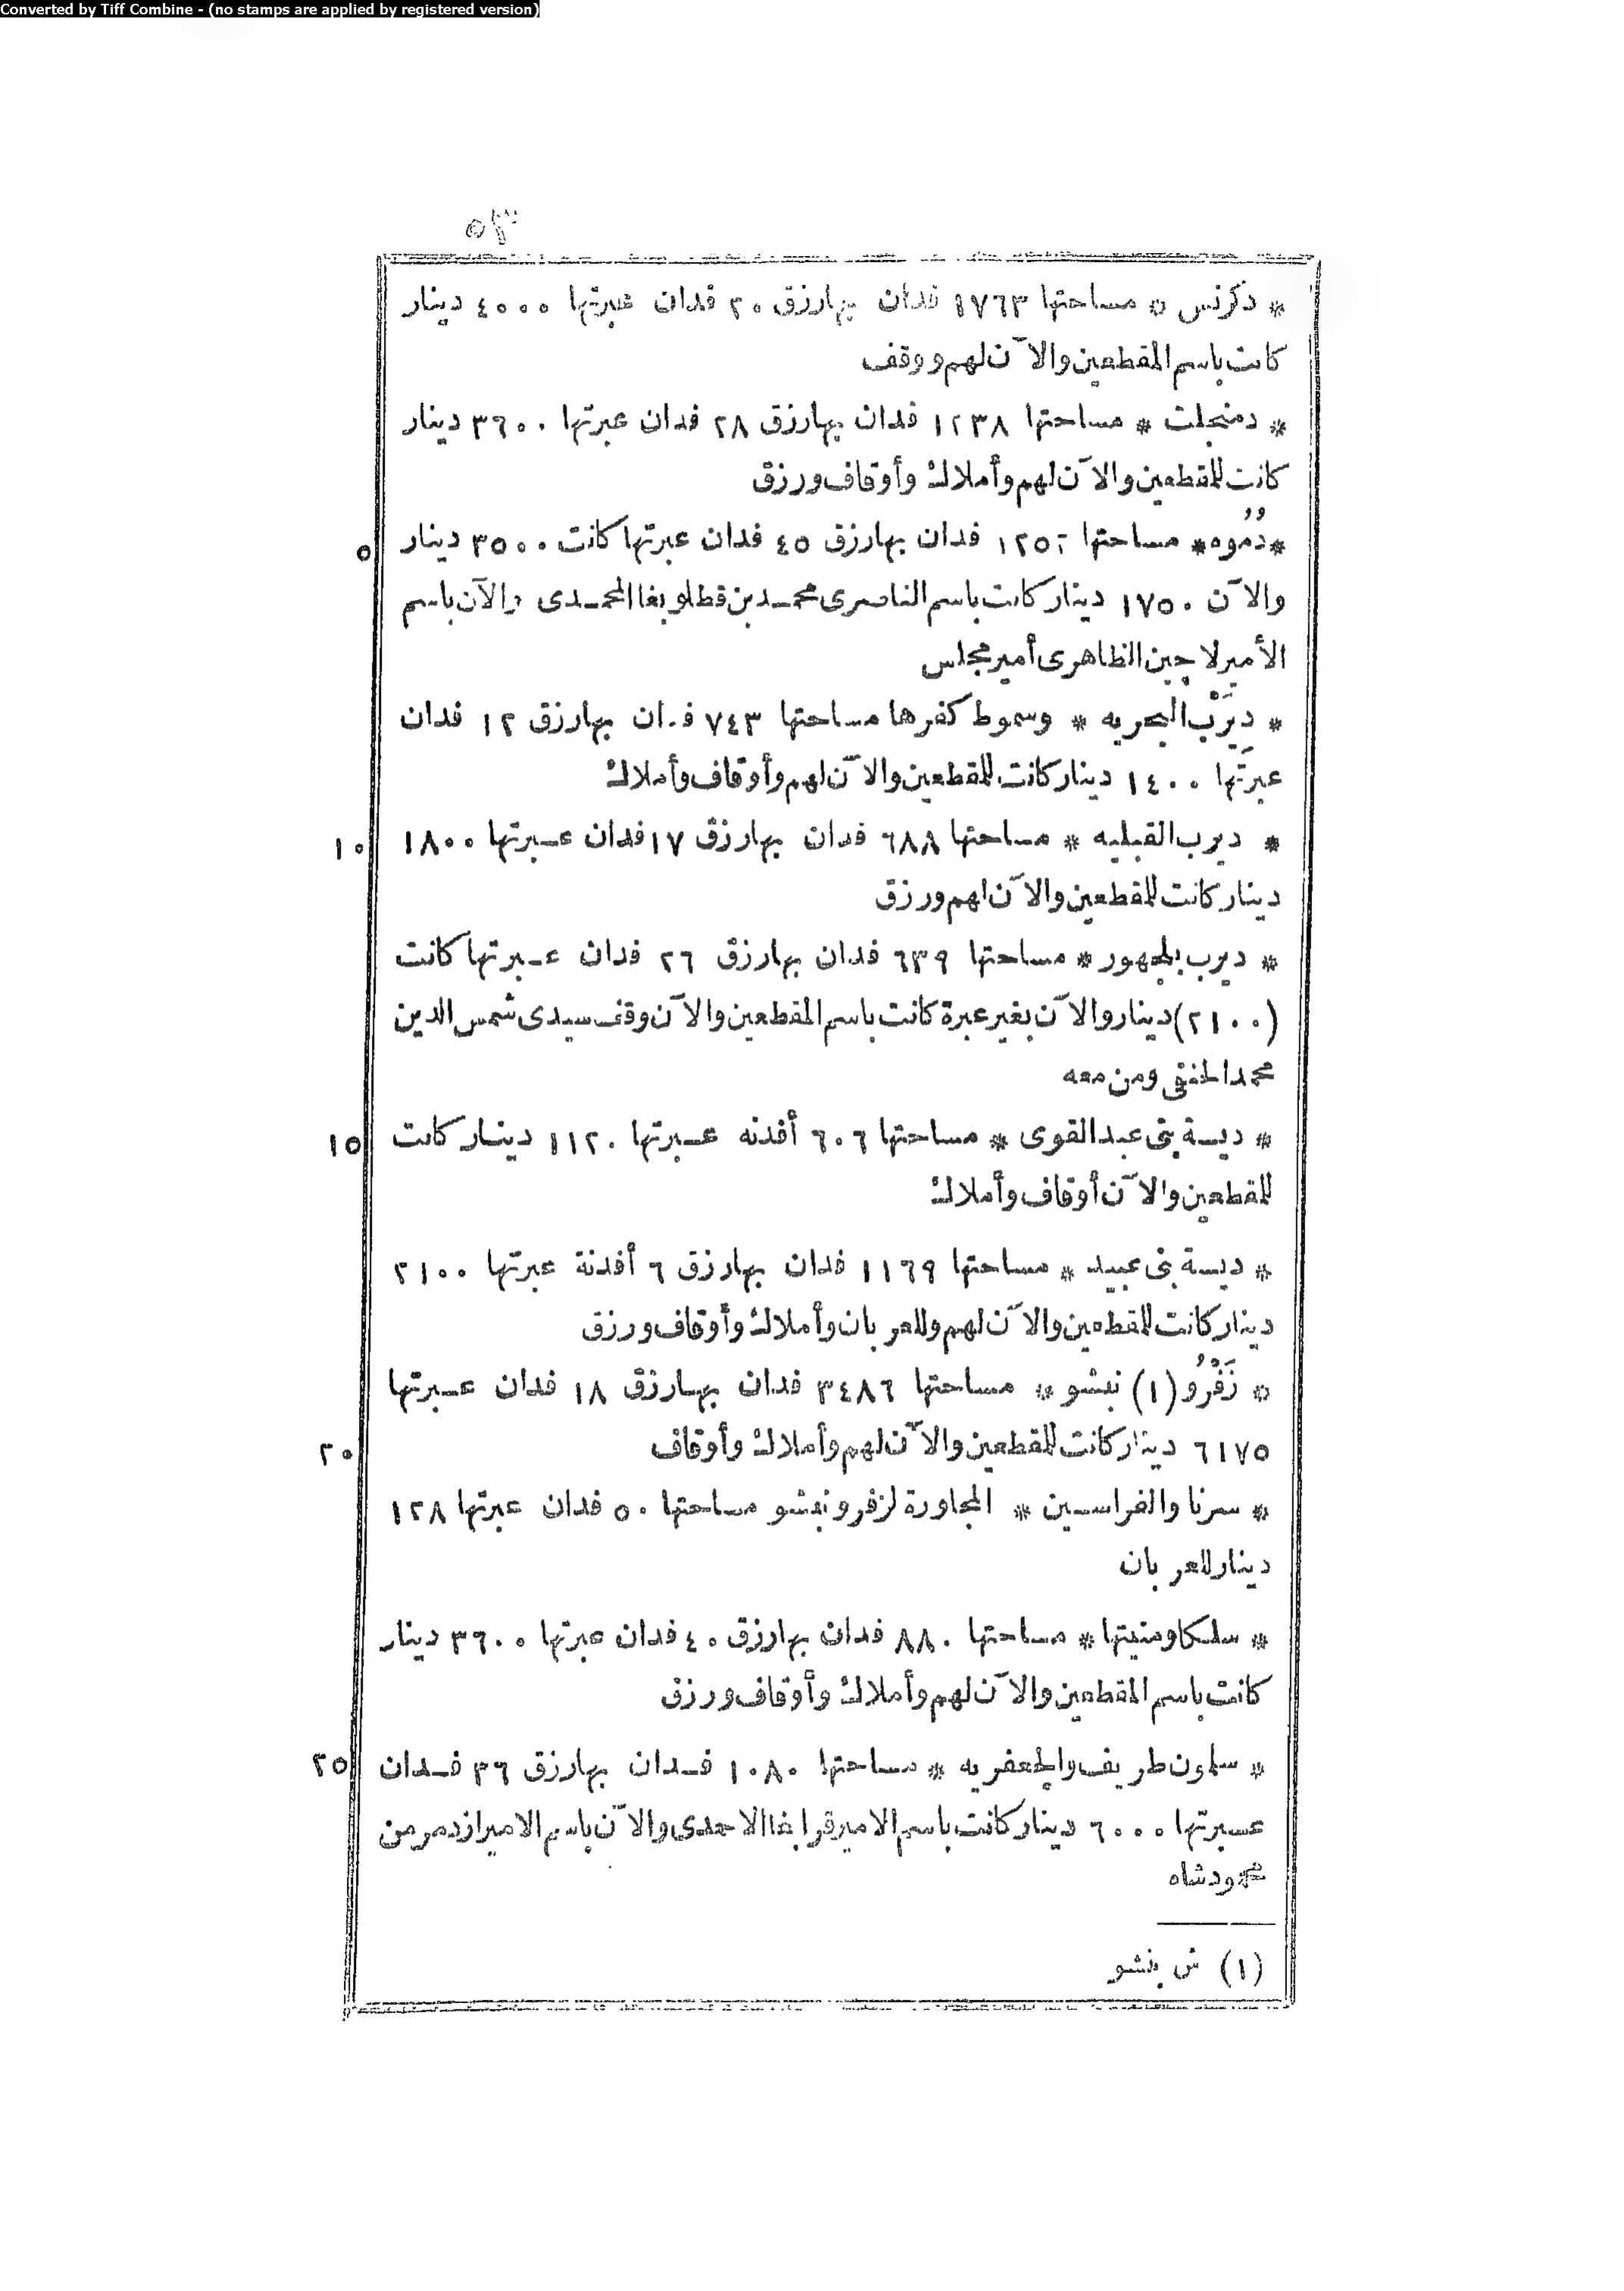 Converted by Tiff Combine - (no stamps are applied by registered version)
٥٣
* دكرنس * مساحتها ١٧٦٣ فدان بهارزق ٢٠ فدان عبرتها ٤٠٠٠ دينار
كانت باسم المقطعين والآن لهم ووقف
* دمنجلت * مساحتها ١٢٣٨ فدان بهارزق ٢٨ فدان عبرتها ٣٦٠٠ دينار
كانت للمقطعين والآن لهم وأملاك وأوقاف ورزق
* دُمُوه * مساحتها فدان بهارزق ٤٥ فدان عبرتها كانت ٣٥٠٠ دينار ٥
والآن ١٧٥٠ دينار كانت باسم الناصرى محمد بن قطلوبغا المحمدى والآن باسم
الأمير لاجين الظاهرى أمير مجلس
* ديرب البحريه * وسموط كفرها مساحتها ٧٤٣ فدان بهارزق ١٢ فدان
عبرتها ١٤٠٠ دينار كانت للمقطعين والآن لهم وأوقاف وأملاك
* ديرب القبليه * مساحتها ٦٨٨ فدان بهارزق ١٧ فدان عبرتها ١٨٠٠ ١٠
دينار كانت للمقطعين والآن لهم ورزق
* ديرب بلجهور * مساحتها ٦٣٩ فدان بهارزق ٢٦ فدان عبرتها كانت
(٢١٠٠) دينار والآن بغير عبرة كانت باسم المقطعين والآن وقف سيدى شمس الدين
محمد الحنفى ومن معه
* ديسة بنى عبد القوى * مساحتها ٦٠٦ أفدنه عبرتها ١١٢٠ دينار كانت ١٥
للمقطعين والآن أوقاف وأملاك
* ديسة بنى عبيد * مساحتها ١١٦٩ فدان بهارزق ٦ أفدنة عبرتها ٢١٠٠
دينار كانت للمقطعين والآن لهم وللعربان وأملاك وأوقاف ورزق
* زَفْرُو (١) نبشو * مساحتها ٣٤٨٦ فدان بهارزق ١٨ فدان عبرتها
٦١٧٥ دينار كانت للمقطعين والآن لهم وأملاك وأوقاف ٢٠
* سرنا والفراسين * المجاورة لزفرو نبشو مساحتها ٥٠ فدان عبرتها ١٢٨
دينار للعربان
* سلكا ومنيتها * مساحتها ٨٨٠ فدان بهارزق ٤٠ فدان عبرتها ٣٦٠٠ دينار
كانت باسم المقطعين والآن لهم وأملاك وأوقاف ورزق
* سلمون طريف والجعفريه * مساحتها ١٠٨٠ فدان بهارزق ٣٦ فدان ٢٥
عبرتها ٦٠٠٠ دينار كانت باسم الامير قرابغا الاحمدى والآن باسم الامير ازدمر من
محمودشاه
(١) ش بنشو